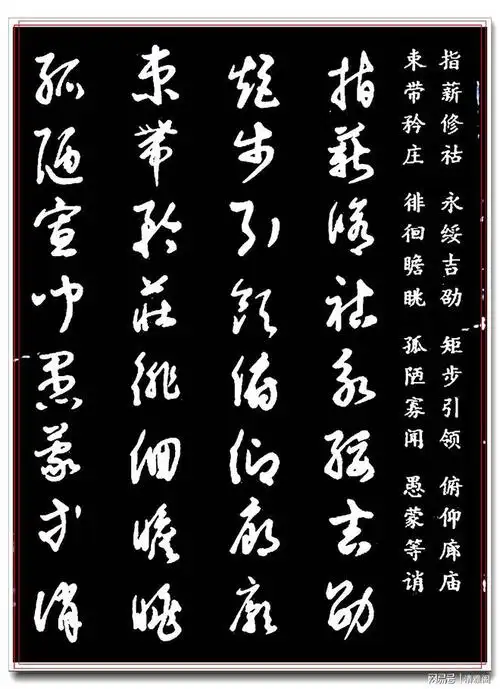 指薪修祜 永绥吉劭 矩步引领 俯仰廊庙
束带矜庄 徘徊瞻眺 孤陋寡闻 愚蒙等诮
指薪脩祜永綏吉劭
矩步引領俯仰廊廟
束帶矜莊徘徊瞻眺
孤陋寡聞愚蒙等誚
网易号